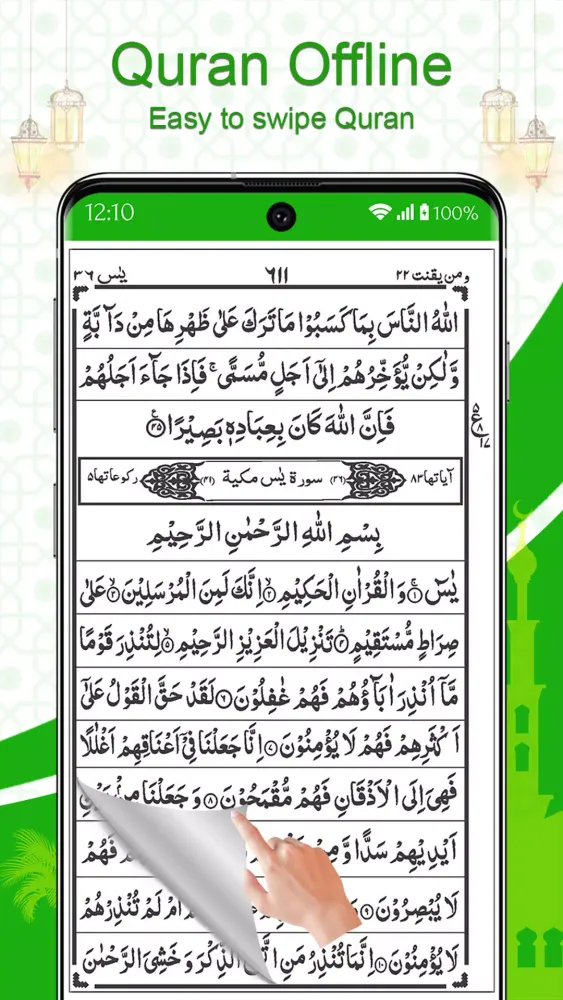 Quran Offline
Easy to swipe Quran
12:10 100%
ومن يقنت ٢٢ ٦١١ يٰس ٣٦
اللّٰهُ النَّاسَ بِمَا كَسَبُوْا مَا تَرَكَ عَلٰى ظَهْرِهَا مِنْ دَآبَّةٍ
وَّلٰكِنْ يُّؤَخِّرُهُمْ اِلٰٓى اَجَلٍ مُّسَمًّى ۚ فَاِذَا جَآءَ اَجَلُهُمْ
فَاِنَّ اللّٰهَ كَانَ بِعِبَادِهٖ بَصِيْرًا ۝٤٥
اٰياتها ٨٣ (٣٦) سورة يٰس مكية (٤١) ركوعاتها ٥
بِسْمِ اللّٰهِ الرَّحْمٰنِ الرَّحِيْمِ
يٰسٓ ۝١ وَ الْقُرْاٰنِ الْحَكِيْمِ ۝٢ اِنَّكَ لَمِنَ الْمُرْسَلِيْنَ ۝٣ عَلٰى
صِرَاطٍ مُّسْتَقِيْمٍ ۝٤ تَنْزِيْلَ الْعَزِيْزِ الرَّحِيْمِ ۝٥ لِتُنْذِرَ قَوْمًا
مَّاۤ اُنْذِرَ اٰبَآؤُهُمْ فَهُمْ غٰفِلُوْنَ ۝٦ لَقَدْ حَقَّ الْقَوْلُ عَلٰٓى
اَكْثَرِهِمْ فَهُمْ لَا يُؤْمِنُوْنَ ۝٧ اِنَّا جَعَلْنَا فِيْۤ اَعْنَاقِهِمْ اَغْلٰلًا
فَهِيَ اِلَى الْاَذْقَانِ فَهُمْ مُّقْمَحُوْنَ ۝٨ وَ جَعَلْنَا مِنْۢ
اَيْدِيْهِمْ سَدًّا وَّ مِنْ فَهُمْ
لَا يُبْصِرُوْنَ ۝٩ اَمْ لَمْ تُنْذِرْهُمْ
لَا يُؤْمِنُوْنَ ۝١٠ اِنَّمَا تُنْذِرُ مَنِ الذِّكْرَ وَ خَشِيَ الرَّحْمٰنَ